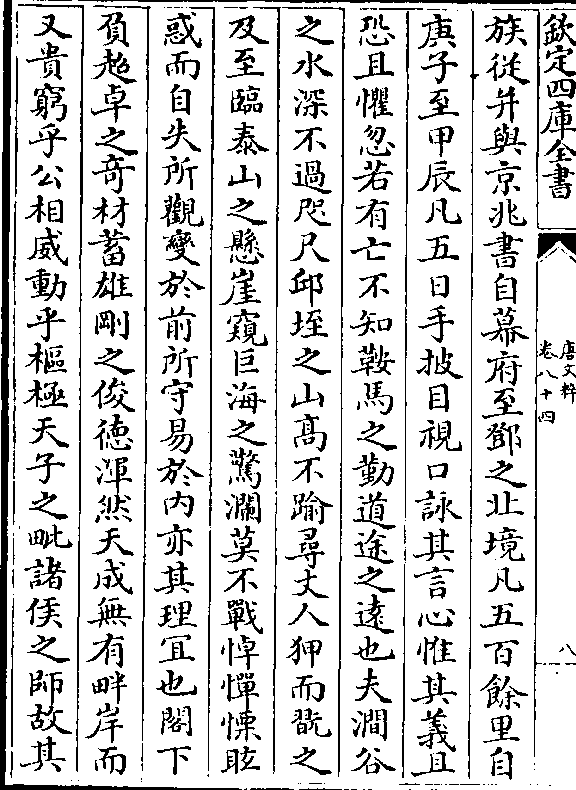 欽定四庫全書
唐文粹
卷八十四
八
族従并與京兆書自幕府至鄧之北境凡五百餘里自
庚子至甲辰凡五日手披目視口詠其言心惟其義且
恐且懼忽若有亡不知鞍馬之勤道途之遠也夫澗谷
之水深不過咫尺邱垤之山髙不踰尋丈人狎而翫之
及至臨泰山之懸崖窺巨海之驚瀾莫不戰悼憚慄眩
惑而自失所觀變於前所守易於内亦其理冝也閣下
負超卓之竒材蓄雄剛之俊徳渾然天成無有畔岸而
又貴窮乎公相威動乎樞極天子之毗諸侯之師故其